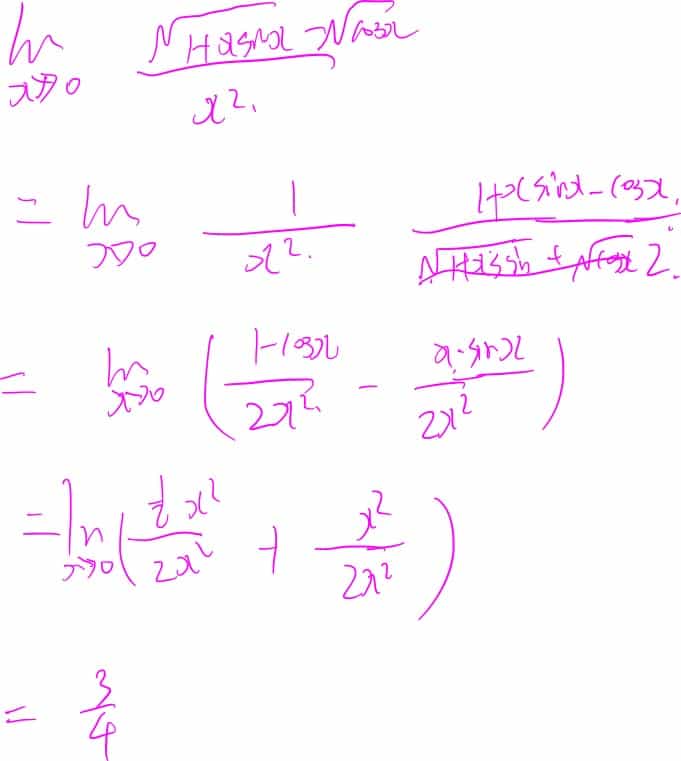 lim x→0 (√(1+xsinx) - √cosx) / x².
= lim x→0 1/x². (1+xsinx-cosx)/(√(1+xsin + √cosx) 2.
= lim x→0 ( (1-cosx)/(2x²) - (x·sinx)/(2x²) )
= lim x→0 ( (½x²)/(2x²) + x²/(2x²) )
= 3/4